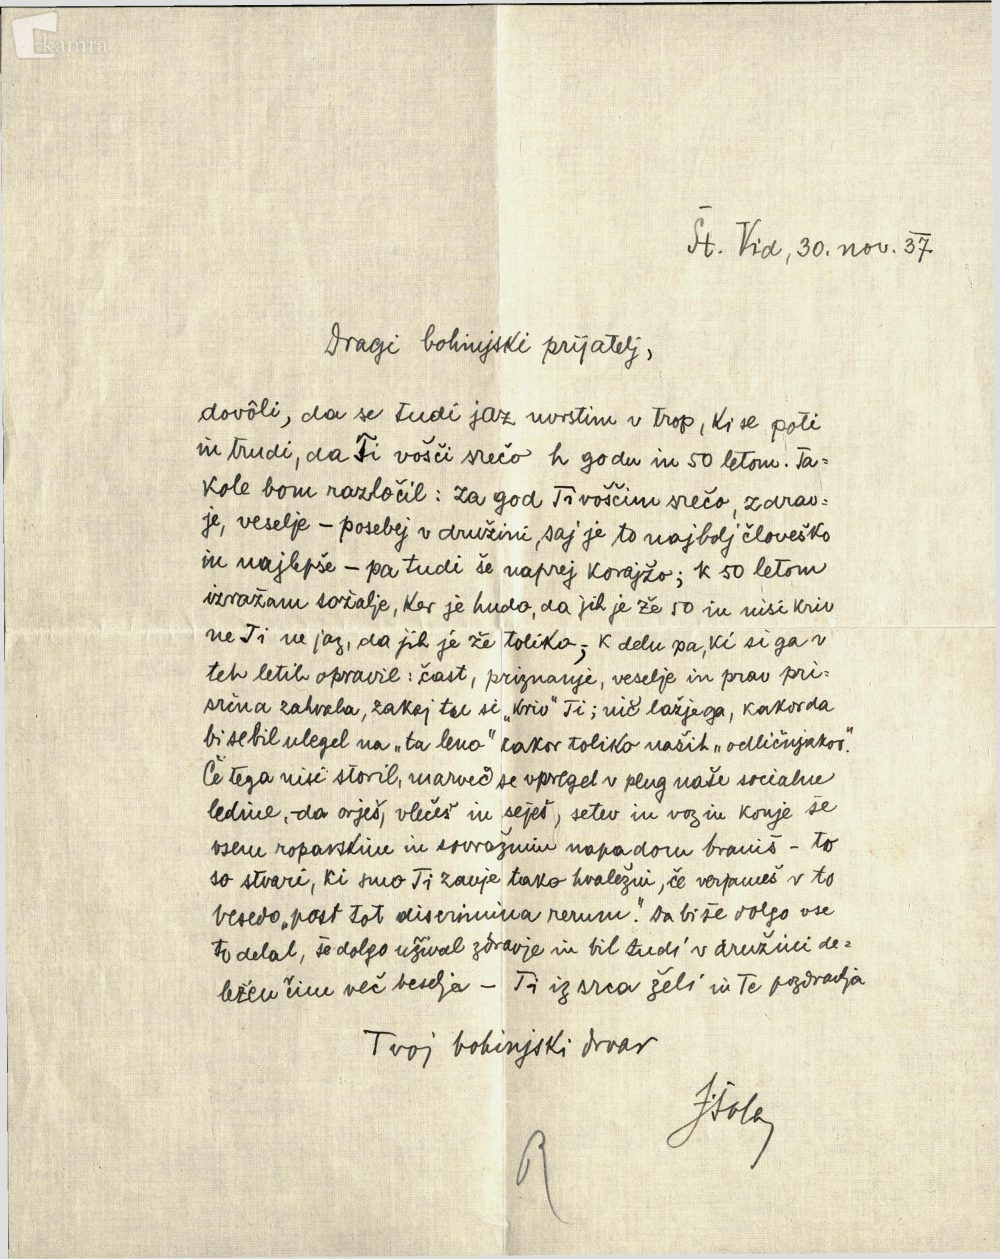 kamra
Št. Vid, 30. nov. 37.
Dragi bohinjski prijatelj,
dovôli, da se tudi jaz uvrstim v trop, ki se poti
in trudi, da Ti vošči srečo h godu in 50 letom. Ta=
kole bom razločil: za god Ti voščim srečo, zdrav=
je, veselje – posebej v družini, saj je to najbolj človeško
in najlepše – pa tudi še naprej korajžo; k 50 letom
izražam sožalje, ker je hudo, da jih je že 50 in nisi kriv
ne Ti ne jaz, da jih je že toliko; k delu pa, ki si ga v
teh letih opravil: čast, priznanje, veselje in prav pri=
srčna zahvala, zakaj tu si „kriv" Ti; nič lažjega, kakor da
bi se bil ulegel na „ta leno" kakor toliko naših „odličnjakov".
Če tega nisi storil, marveč se vpregel v plug naše socialne
ledine, – da orješ, vlečeš in seješ, setev in voz in konje še
vsem roparskim in sovražnim napadom braniš – to
so stvari, ki smo Ti zanje tako hvaležni, če verjameš v to
besedo „post tot discrimina rerum". Da bi še dolgo vse
to delal, še dolgo užival zdravje in bil tudi v družini de=
ležen čim več veselja – Ti iz srca želi in Te pozdravlja
Tvoj bohinjski drvar
R